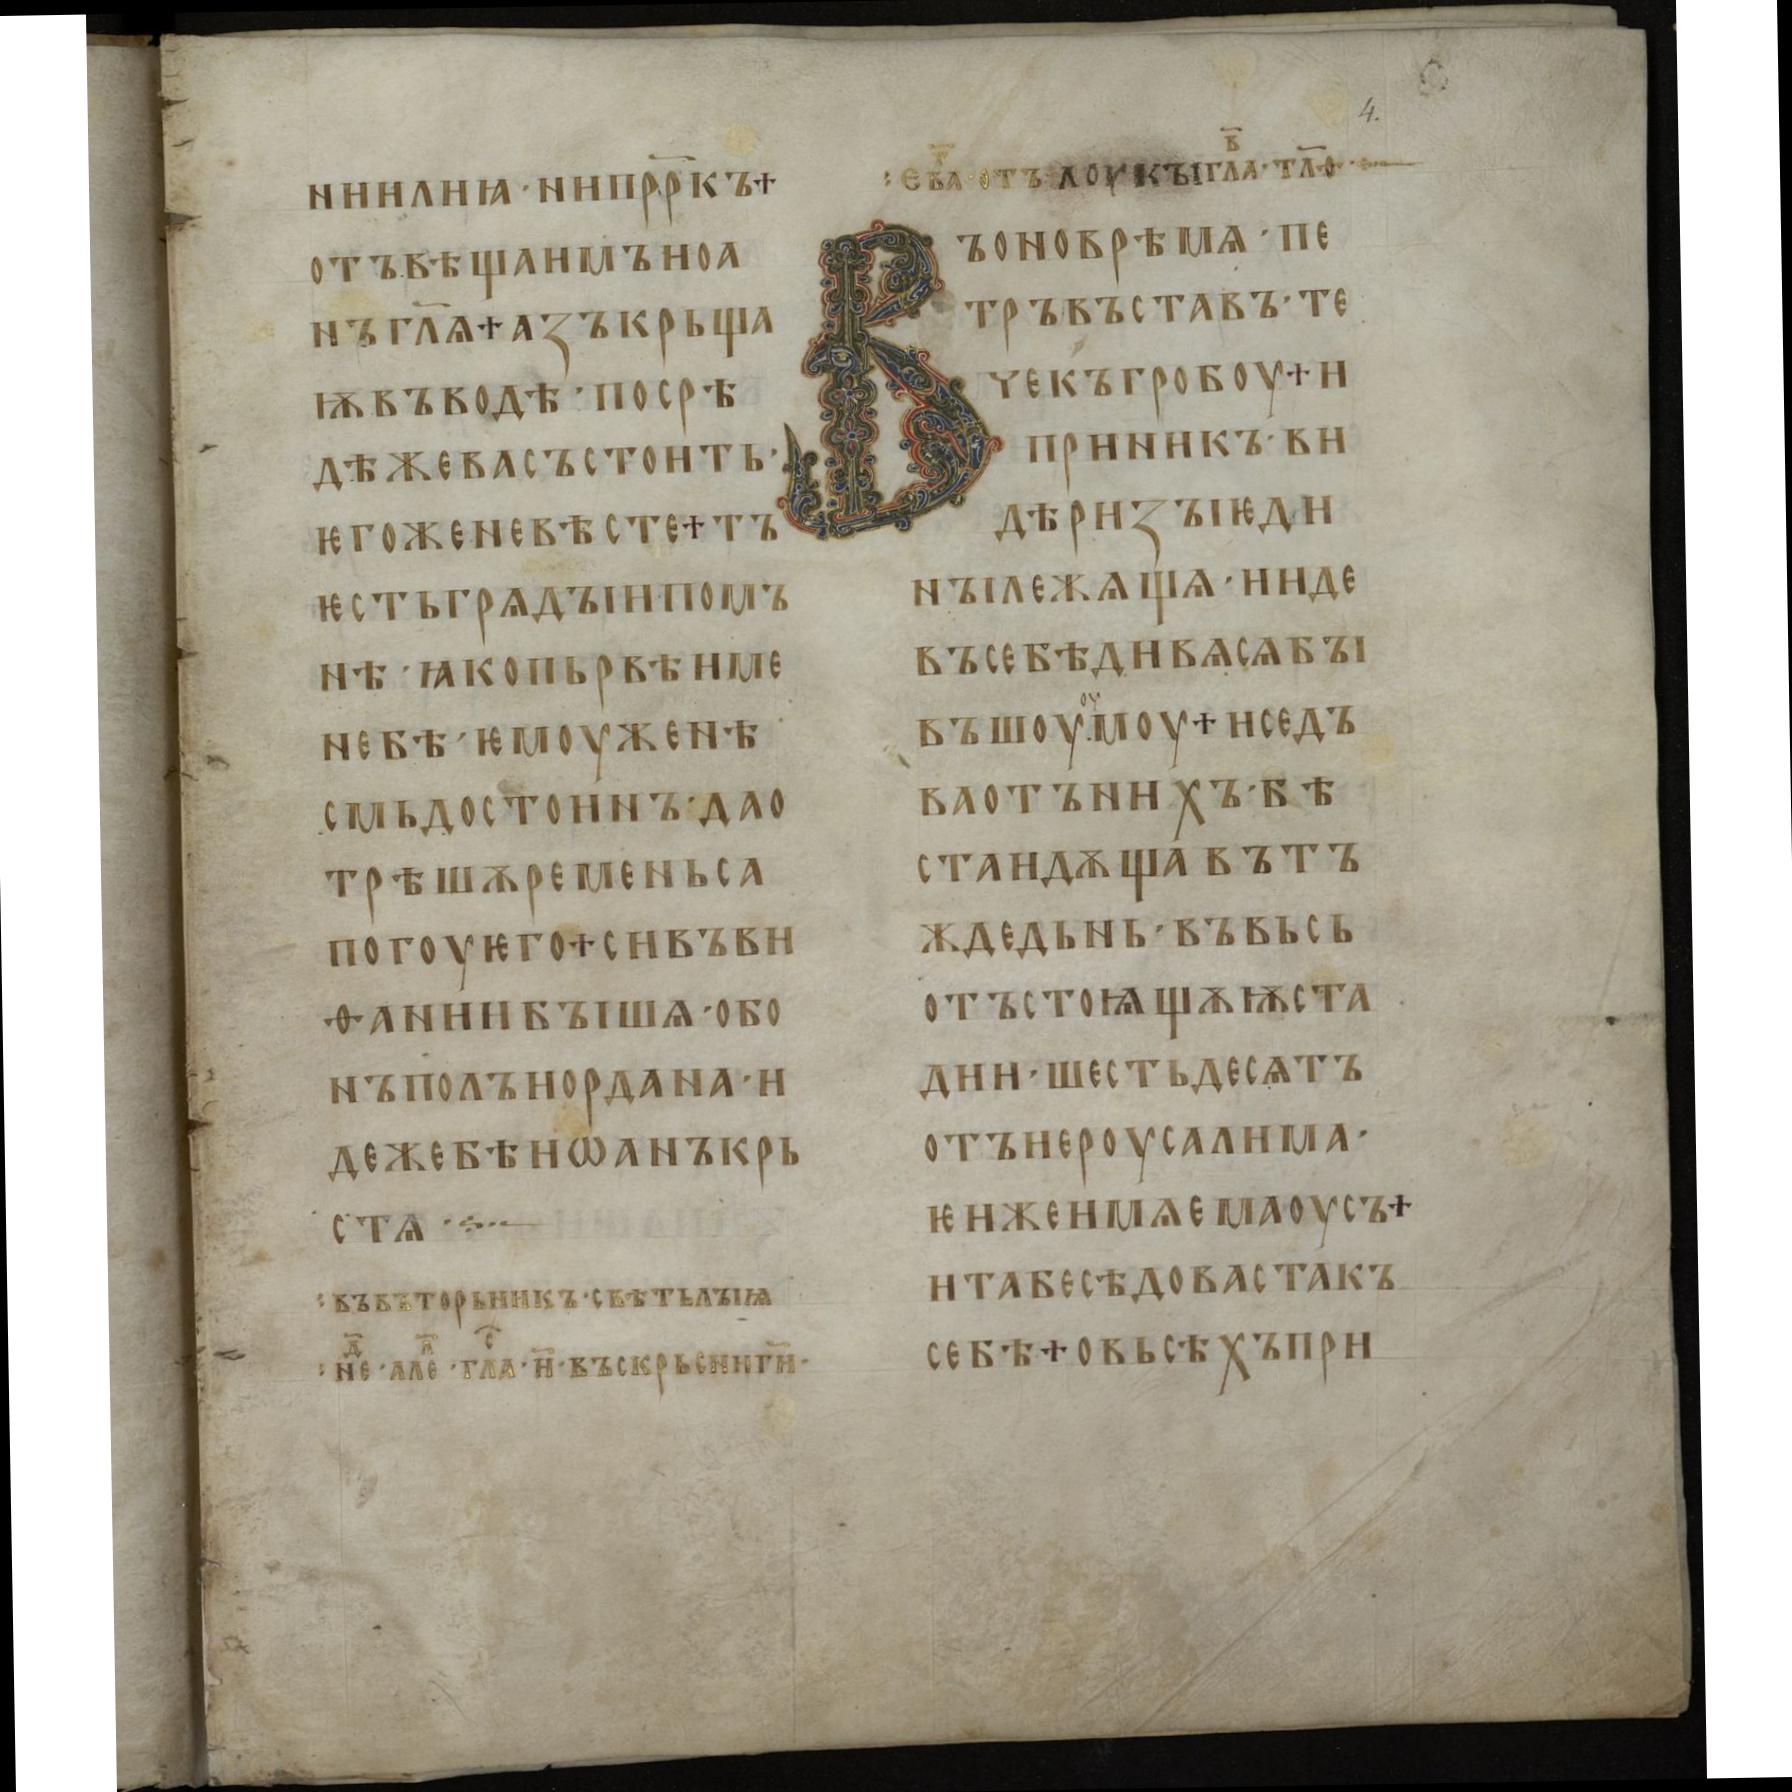 4.
нинлиꙗ · нипрр҃къ+
отъвѣщаимъиоа
нъгл҃ѧ+азъкрьща
ѭвъводѣ · посрѣ
дѣжевасъстоить ·
ѥгоженевѣсте+тъ
ѥстьгрѧдꙑипомъ
нѣ · ꙗкопьрвѣиме
небѣ · ѥмоуженѣ
смьдостоинъ · дао
трѣшѫременьса
погоуѥго+сивъви
ѳаниибꙑшѧ · обо
нъполъиордана · и
дежебѣиѡанъкрь
стѧ ·
: въвъторьникъ · свѣтьлꙑѩ
: нед҃ · алел҃ · глас҃ · и҃ · въскрьсниги҃ ·
: ев҃а · отъ лоукꙑ гл҃ав · тл҃о ·
Въоноврѣмѧ · пе
тръвъставъ · те
чекъгробоу+и
приникъ · ви
дѣризꙑѥди
нꙑлежѧщѧ ·ииде
въсебѣдивѧсѧбꙑ
въшоуоумоу+иседъ
ваотънихъ · бѣ
стаидѫщавътъ
ждедьнь · въвьсь
отъстоѩщѫѭста
дии · шестьдесѧтъ
отъиероусалима ·
ѥижеимѧемаоусъ+
итабесѣдовастакъ
себѣ+овьсѣхъпри